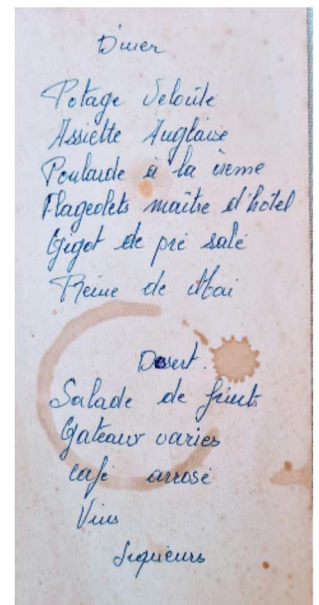 Diner
Potage Velouté
Assiette Anglaise
Poularde à la crème
Flageolets maître d'hôtel
Gigot de pré salé
Reine de Mai
Désert.
Salade de fruits
Gateaux variés
café arrosé
Vins
Liqueurs